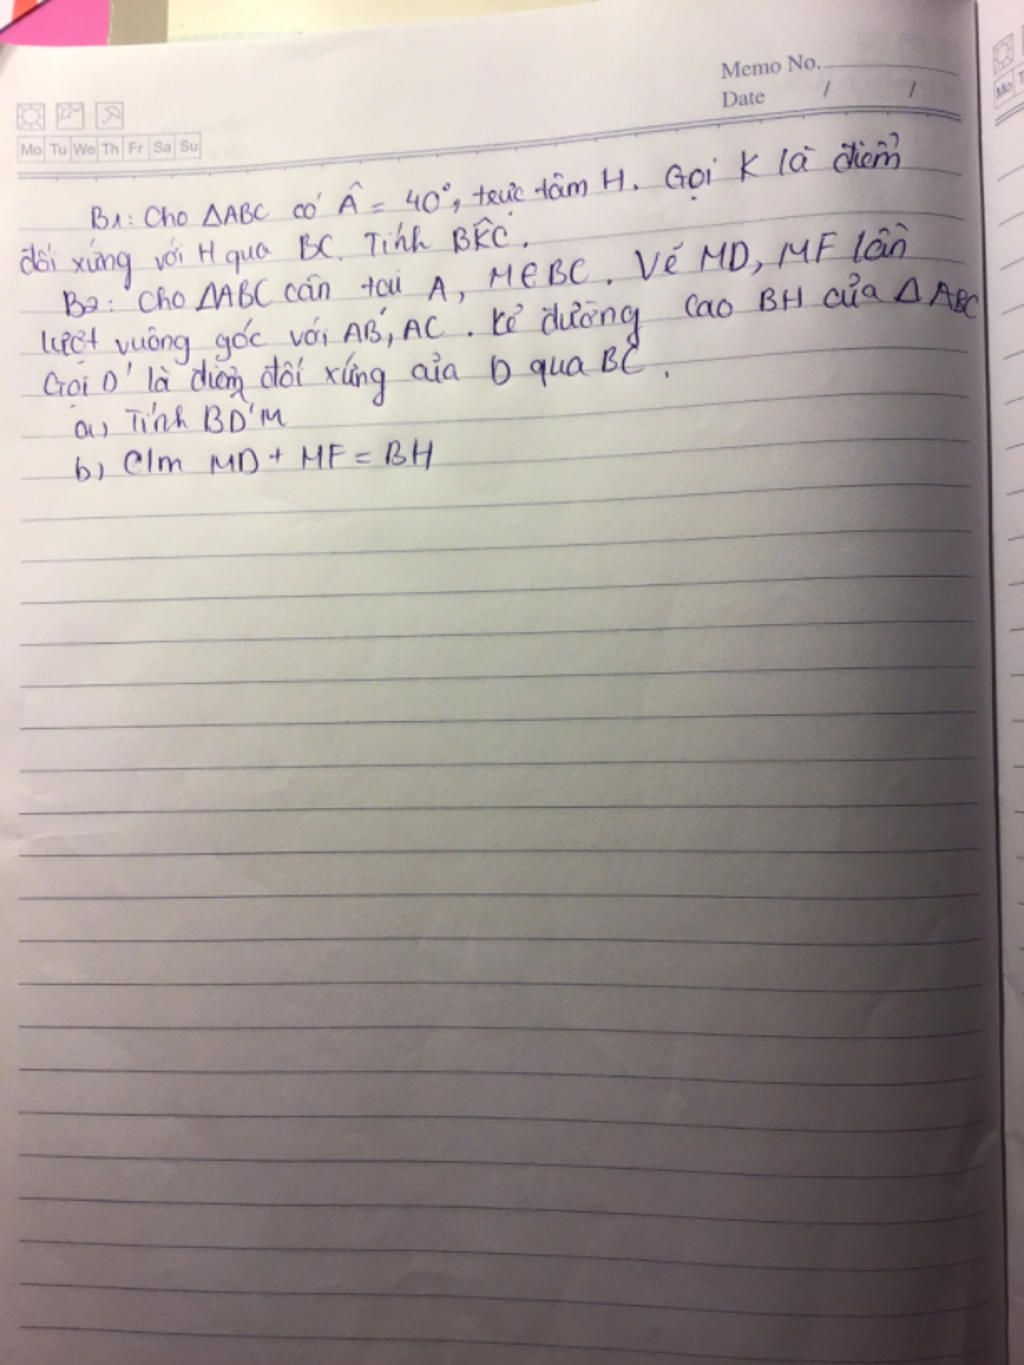 Memo No.
Date / /
Mo Tu We Th Fr Sa Su
B1: Cho ΔABC có Â = 40°, trực tâm H. Gọi K là điểm
đối xứng với H qua BC. Tính BK̂C.
B2: Cho ΔABC cân tại A, M∈BC. Vẽ MD, MF lần
lượt vuông góc với AB, AC. Kẻ đường cao BH của ΔABC
Gọi D' là điểm đối xứng của D qua BC.
a) Tính BD̂'M
b) C/m MD + MF = BH
Mo T